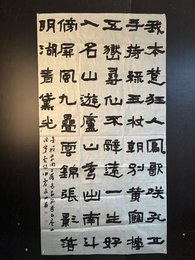 我本楚狂人鳳歌咲孔丘
手持綠玉杖朝別黃鶴樓
五嶽尋仙不辭遠一生好
入名山遊廬山秀出南斗
傍屏風九疊雲錦張影落
明湖青黛光